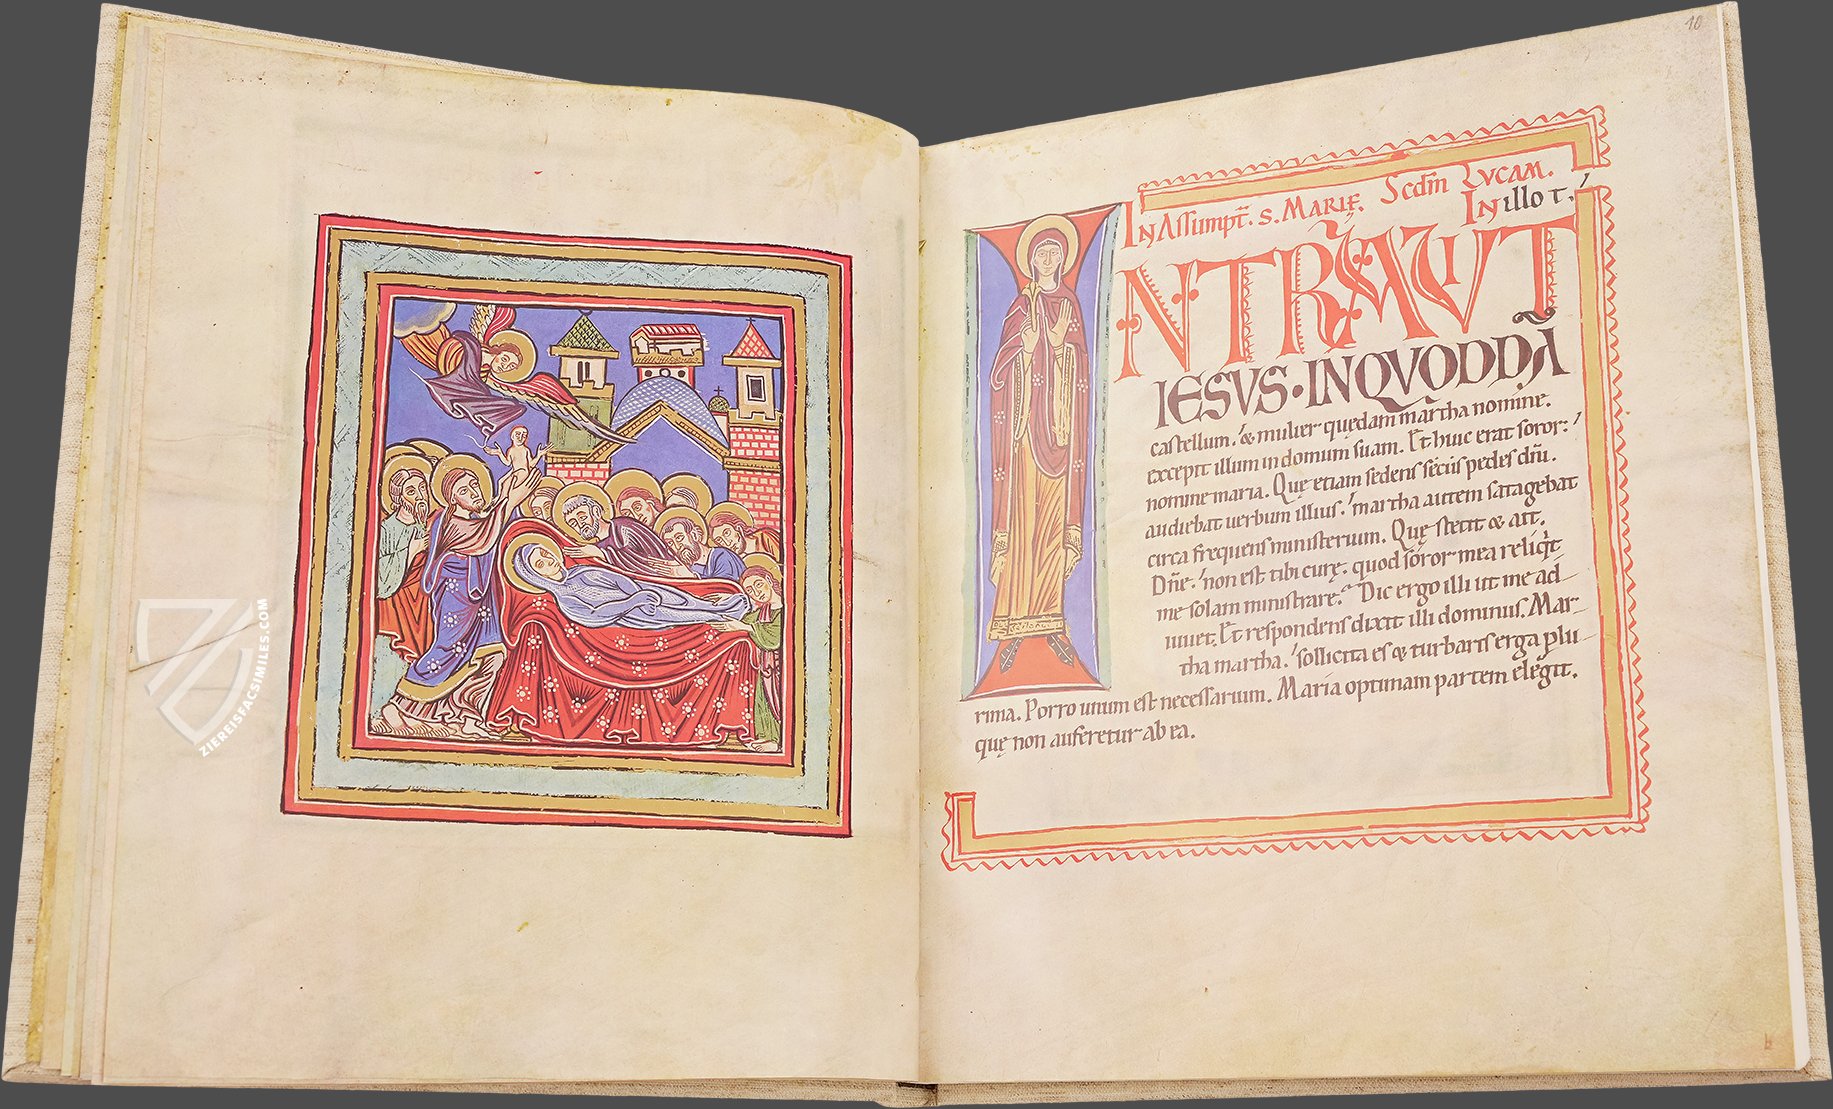 ZIEREISFACSIMILES.COM
10
IN Assumpt̄. S. MARIĘ. Scd̄m LVCAM.
IN illo t.
INTRAVIT
IESVS · IN QVODDĀ
castellum. & mulier quędam martha nomine.
excepit illum in domum suam. Et huic erat soror:
nomine maria. Quę etiam sedens secus pedes dn̄i.
audiebat uerbum illius. martha autem satagebat
circa frequens ministerium. Quę stetit & ait.
Dn̄e. non est tibi curę. quod soror mea reliq̇t
me solam ministrare. Dic ergo illi ut me ad
iuuet. Et respondens dixit illi dominus. Mar-
tha martha. sollicita es & turbaris erga plu
rima. Porro unum est necessarium. Maria optimam partem elegit.
quę non auferetur ab ea.